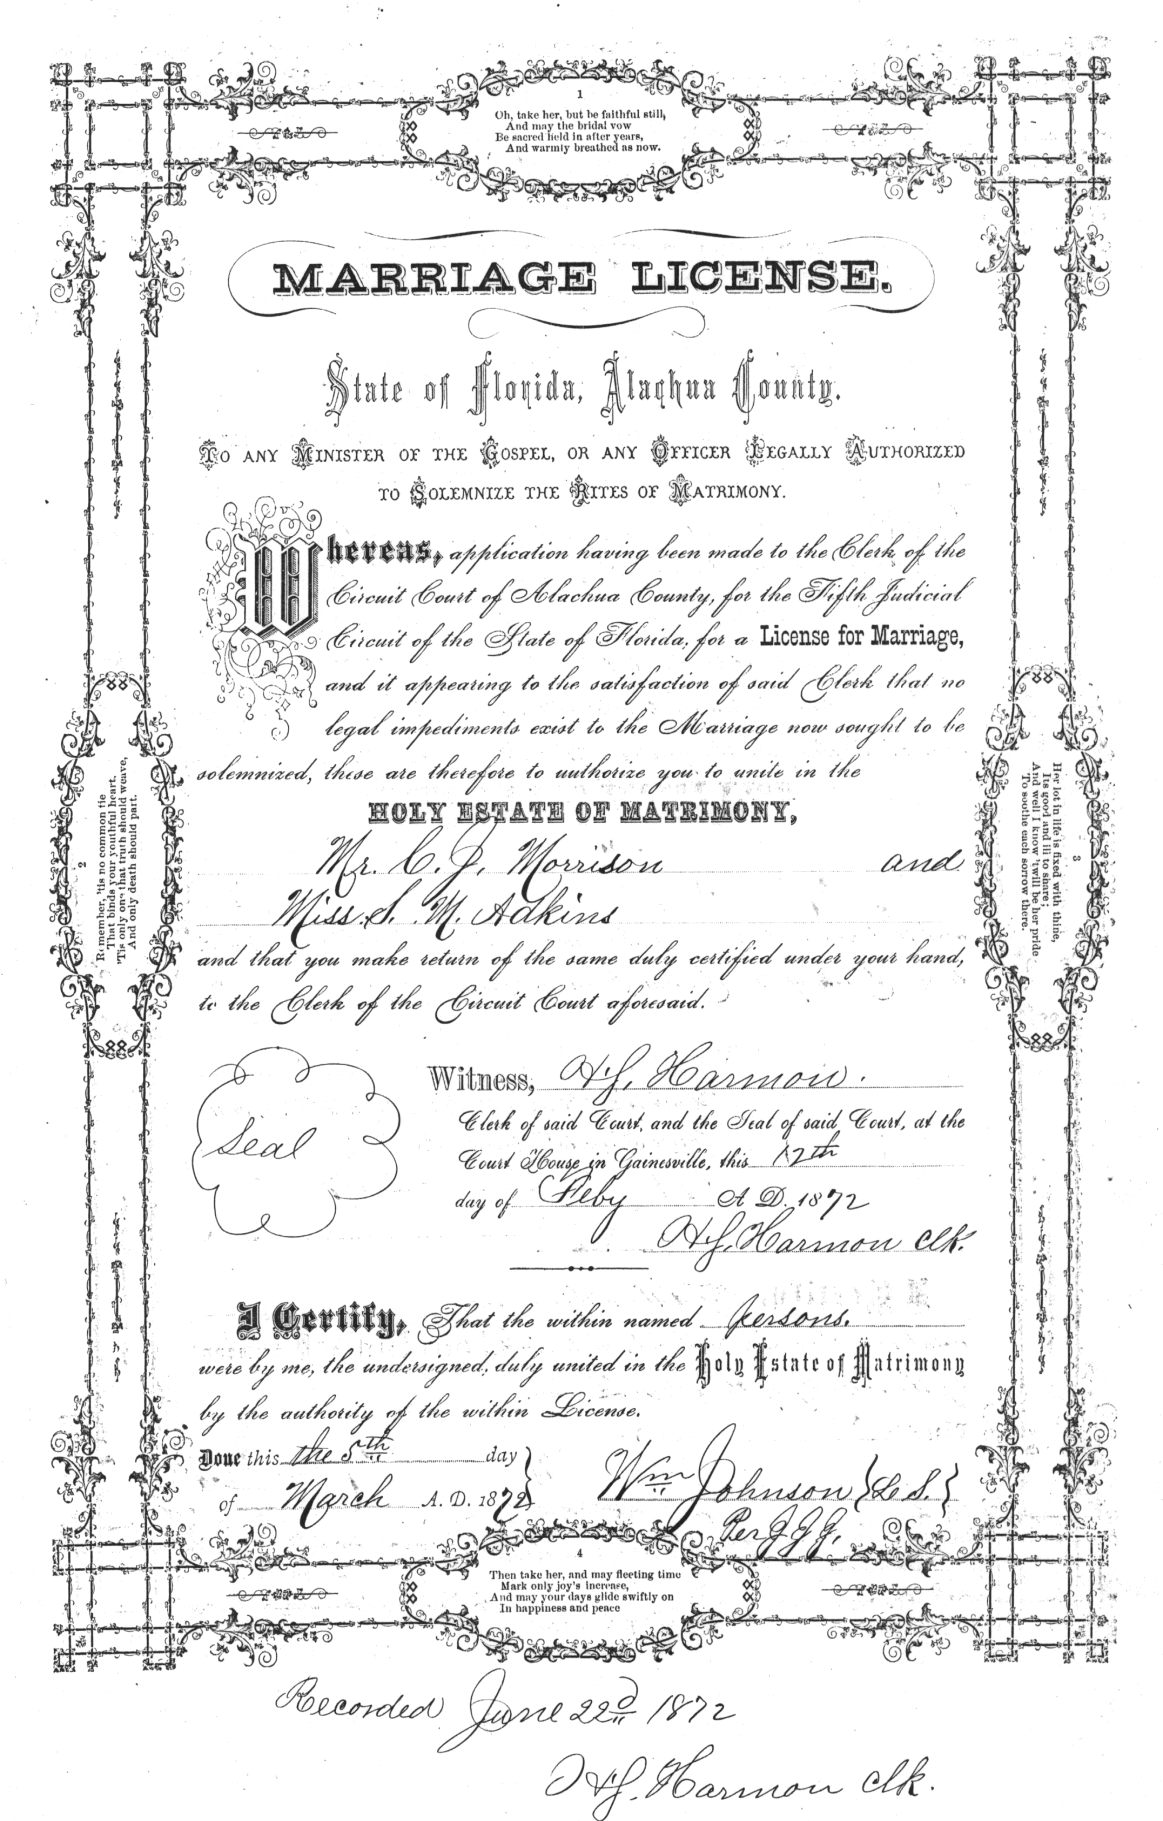 1
Oh, take her, but be faithful still,
And may the bridal vow
Be sacred held in after years,
And warmly breathed as now.
MARRIAGE LICENSE.
State of Florida, Alachua County.
TO ANY MINISTER OF THE GOSPEL, OR ANY OFFICER LEGALLY AUTHORIZED
TO SOLEMNIZE THE RITES OF MATRIMONY.
Whereas, application having been made to the Clerk of the
Circuit Court of Alachua County, for the Fifth Judicial
Circuit of the State of Florida, for a License for Marriage,
and it appearing to the satisfaction of said Clerk that no
legal impediments exist to the Marriage now sought to be
solemnized, these are therefore to authorize you to unite in the
HOLY ESTATE OF MATRIMONY,
Mr. C. J. Morrison and
Miss. S. M. Adkins
and that you make return of the same duly certified under your hand,
to the Clerk of the Circuit Court aforesaid.
2
Remember, 'tis no common tie
That binds your youthful heart.
'Tis only one that truth should weave,
And only death should part.
3
Her lot in life is fixed with thine,
Its good and ill to share;
And well I know 'twill be her pride
To soothe each sorrow there.
Seal
Witness, H. J. Harmon.
Clerk of said Court, and the Seal of said Court, at the
Court House in Gainesville, this 17th
day of Feby A. D. 1872
H. J. Harmon Clk.
I Certify, That the within named persons.
were by me, the undersigned, duly united in the Holy Estate of Matrimony
by the authority of the within License.
Done this the 5th day
of March A. D. 1872
Wm Johnson {L. S.}
Per J. J. J.
4
Then take her, and may fleeting time
Mark only joy's increase,
And may your days glide swiftly on
In happiness and peace
Recorded June 22d 1872
H. J. Harmon Clk.